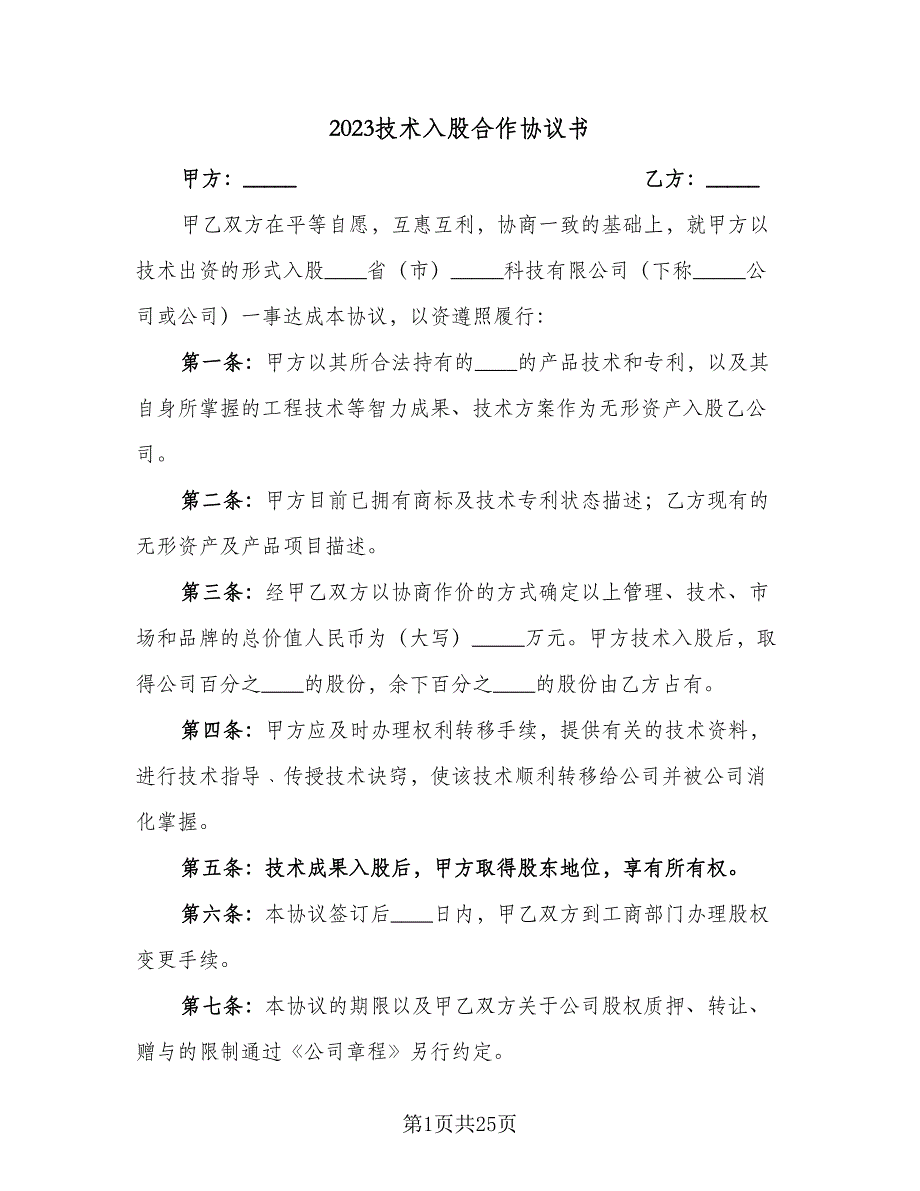 2023技术入股合作协议书
甲方：_____ 乙方：_____
甲乙双方在平等自愿，互惠互利，协商一致的基础上，就甲方以
技术出资的形式入股____省（市）_____科技有限公司（下称_____公
司或公司）一事达成本协议，以资遵照履行：
第一条：甲方以其所合法持有的____的产品技术和专利，以及其
自身所掌握的工程技术等智力成果、技术方案作为无形资产入股乙公
司。
第二条：甲方目前已拥有商标及技术专利状态描述；乙方现有的
无形资产及产品项目描述。
第三条：经甲乙双方以协商作价的方式确定以上管理、技术、市
场和品牌的总价值人民币为（大写）_____万元。甲方技术入股后，取
得公司百分之____的股份，余下百分之____的股份由乙方占有。
第四条：甲方应及时办理权利转移手续，提供有关的技术资料，
进行技术指导﹑传授技术诀窍，使该技术顺利转移给公司并被公司消
化掌握。
第五条：技术成果入股后，甲方取得股东地位，享有所有权。
第六条：本协议签订后____日内，甲乙双方到工商部门办理股权
变更手续。
第七条：本协议的期限以及甲乙双方关于公司股权质押、转让、
赠与的限制通过《公司章程》另行约定。
第1页共25页